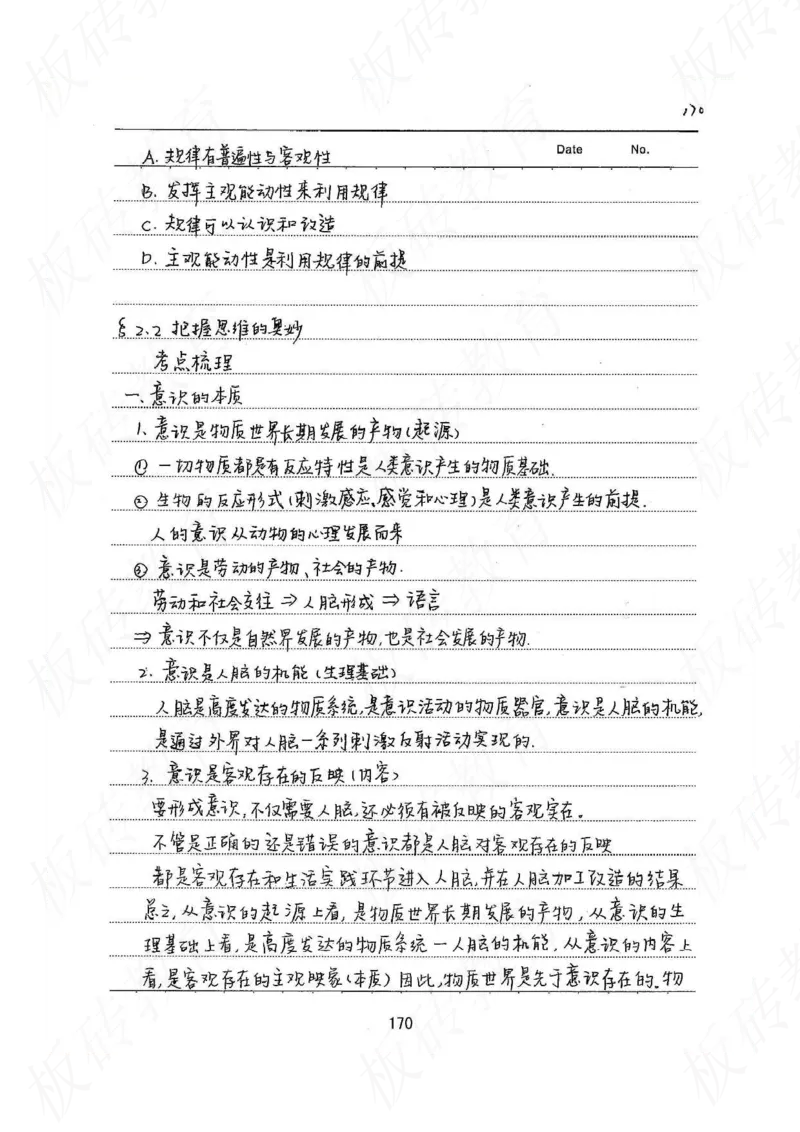 170
Date No.
A. 规律有普遍性与客观性
B. 发挥主观能动性来利用规律
C. 规律可以认识和改造
D. 主观能动性是利用规律的前提
§2.2 把握思维的奥妙
考点梳理
一、意识的本质
1、意识是物质世界长期发展的产物(起源)
① 一切物质都是有反应特性是人类意识产生的物质基础.
② 生物的反应形式(刺激感应、感觉和心理)是人类意识产生的前提.
人的意识从动物的心理发展而来
③ 意识是劳动的产物、社会的产物.
劳动和社会交往 ⇒ 人脑形成 ⇒ 语言
⇒ 意识不仅是自然界发展的产物,也是社会发展的产物.
2. 意识是人脑的机能(生理基础)
人脑是高度发达的物质系统,是意识活动的物质器官,意识是人脑的机能,
是通过外界对人脑一系列刺激反射活动实现的.
3. 意识是客观存在的反映(内容)
要形成意识,不仅需要人脑,还必须有被反映的客观实在。
不管是正确的还是错误的意识都是人脑对客观存在的反映
都是客观存在和生活实践环节进入人脑,并在人脑加工改造的结果
总之,从意识的起源上看,是物质世界长期发展的产物,从意识的生
理基础上看,是高度发达的物质系统一人脑的机能,从意识的内容上
看,是客观存在的主观映象(本质)因此,物质世界是先于意识存在的。物
170
板砖教育